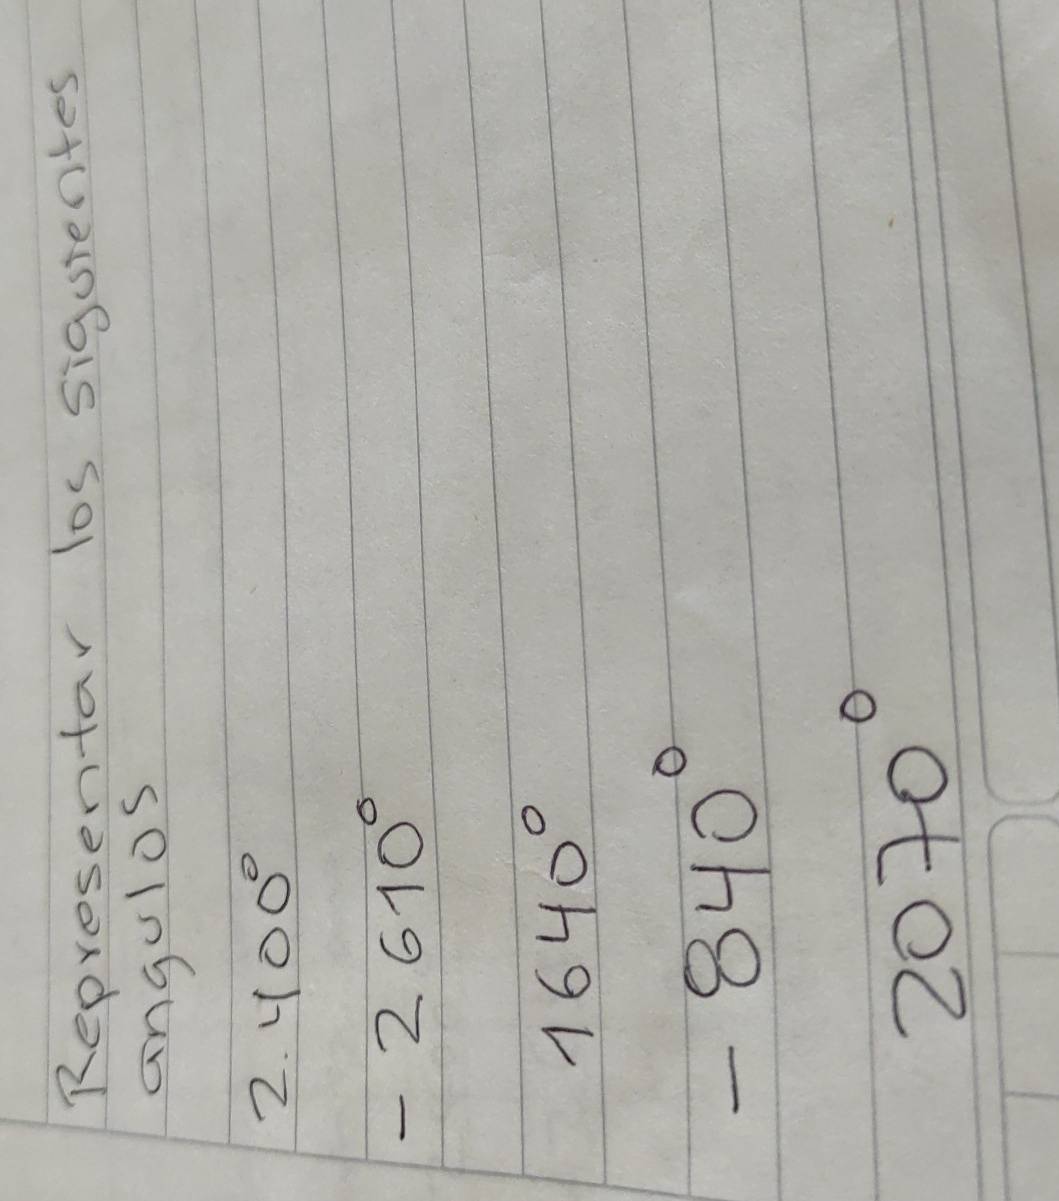 Representar los siguientes
angulos
2.400°
- 2610°
1640°
- 840°
2070°